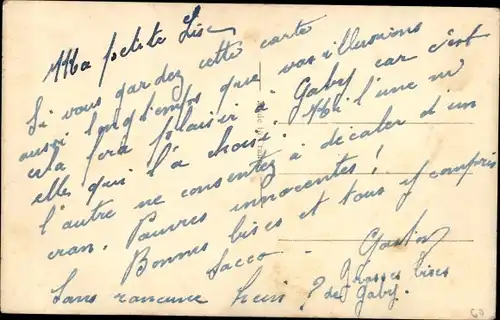 Ma petite Lise
Si vous gardez cette carte
aussi longtemps que vos illusions
cela fera plaisir à Gaby car c'est
elle qui l'a choisi. Ni l'une ni
l'autre ne consentez à décaler d'un
cran. Pauvres innocentes !
Bonnes bises et tous y compris
Sacco. Gaston
Sans rancune hein ? Grosses bises
de Gaby.